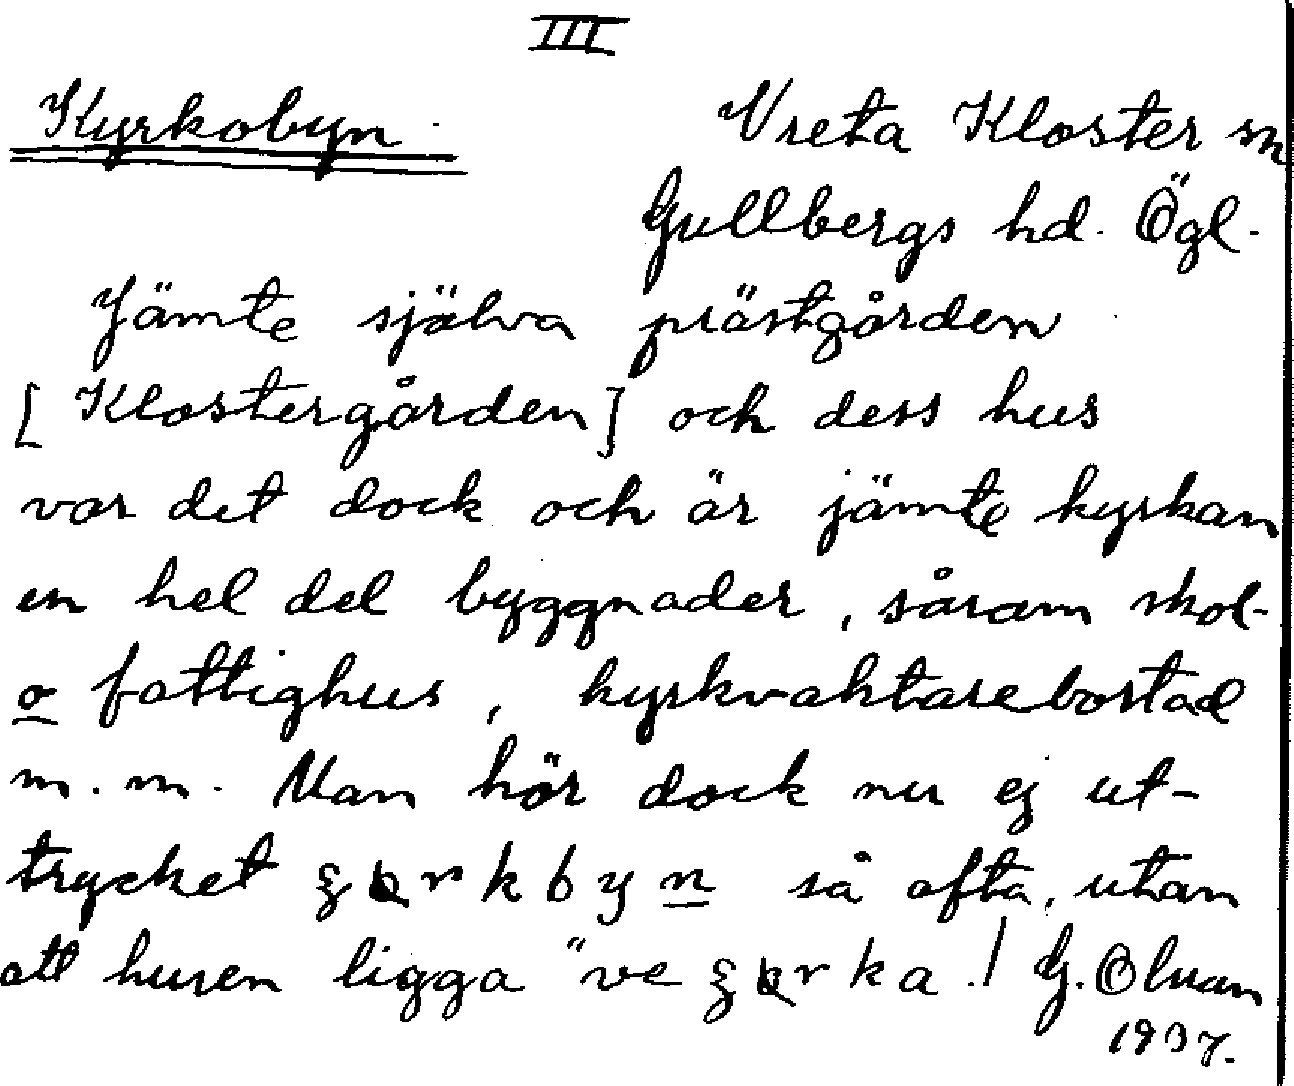 III
Kyrkobyn
Vreta Kloster sn
Gullbergs hd. Ögl.
Jämte själva prästgården
[Klostergården] och dess hus
var det dock och är jämte kyrkan
en hel del byggnader, såsom skol-
o fattighus, kyrkvaktarebostad
m.m. Man hör dock nu ej ut-
trycket så ofta, utan
att husen ligga "ve
G. Olsson
1937.